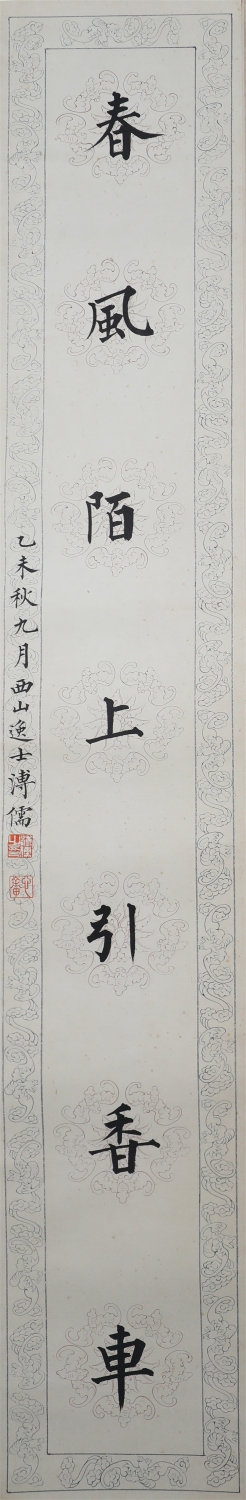 春風陌上引香車
乙未秋九月西山逸士溥儒